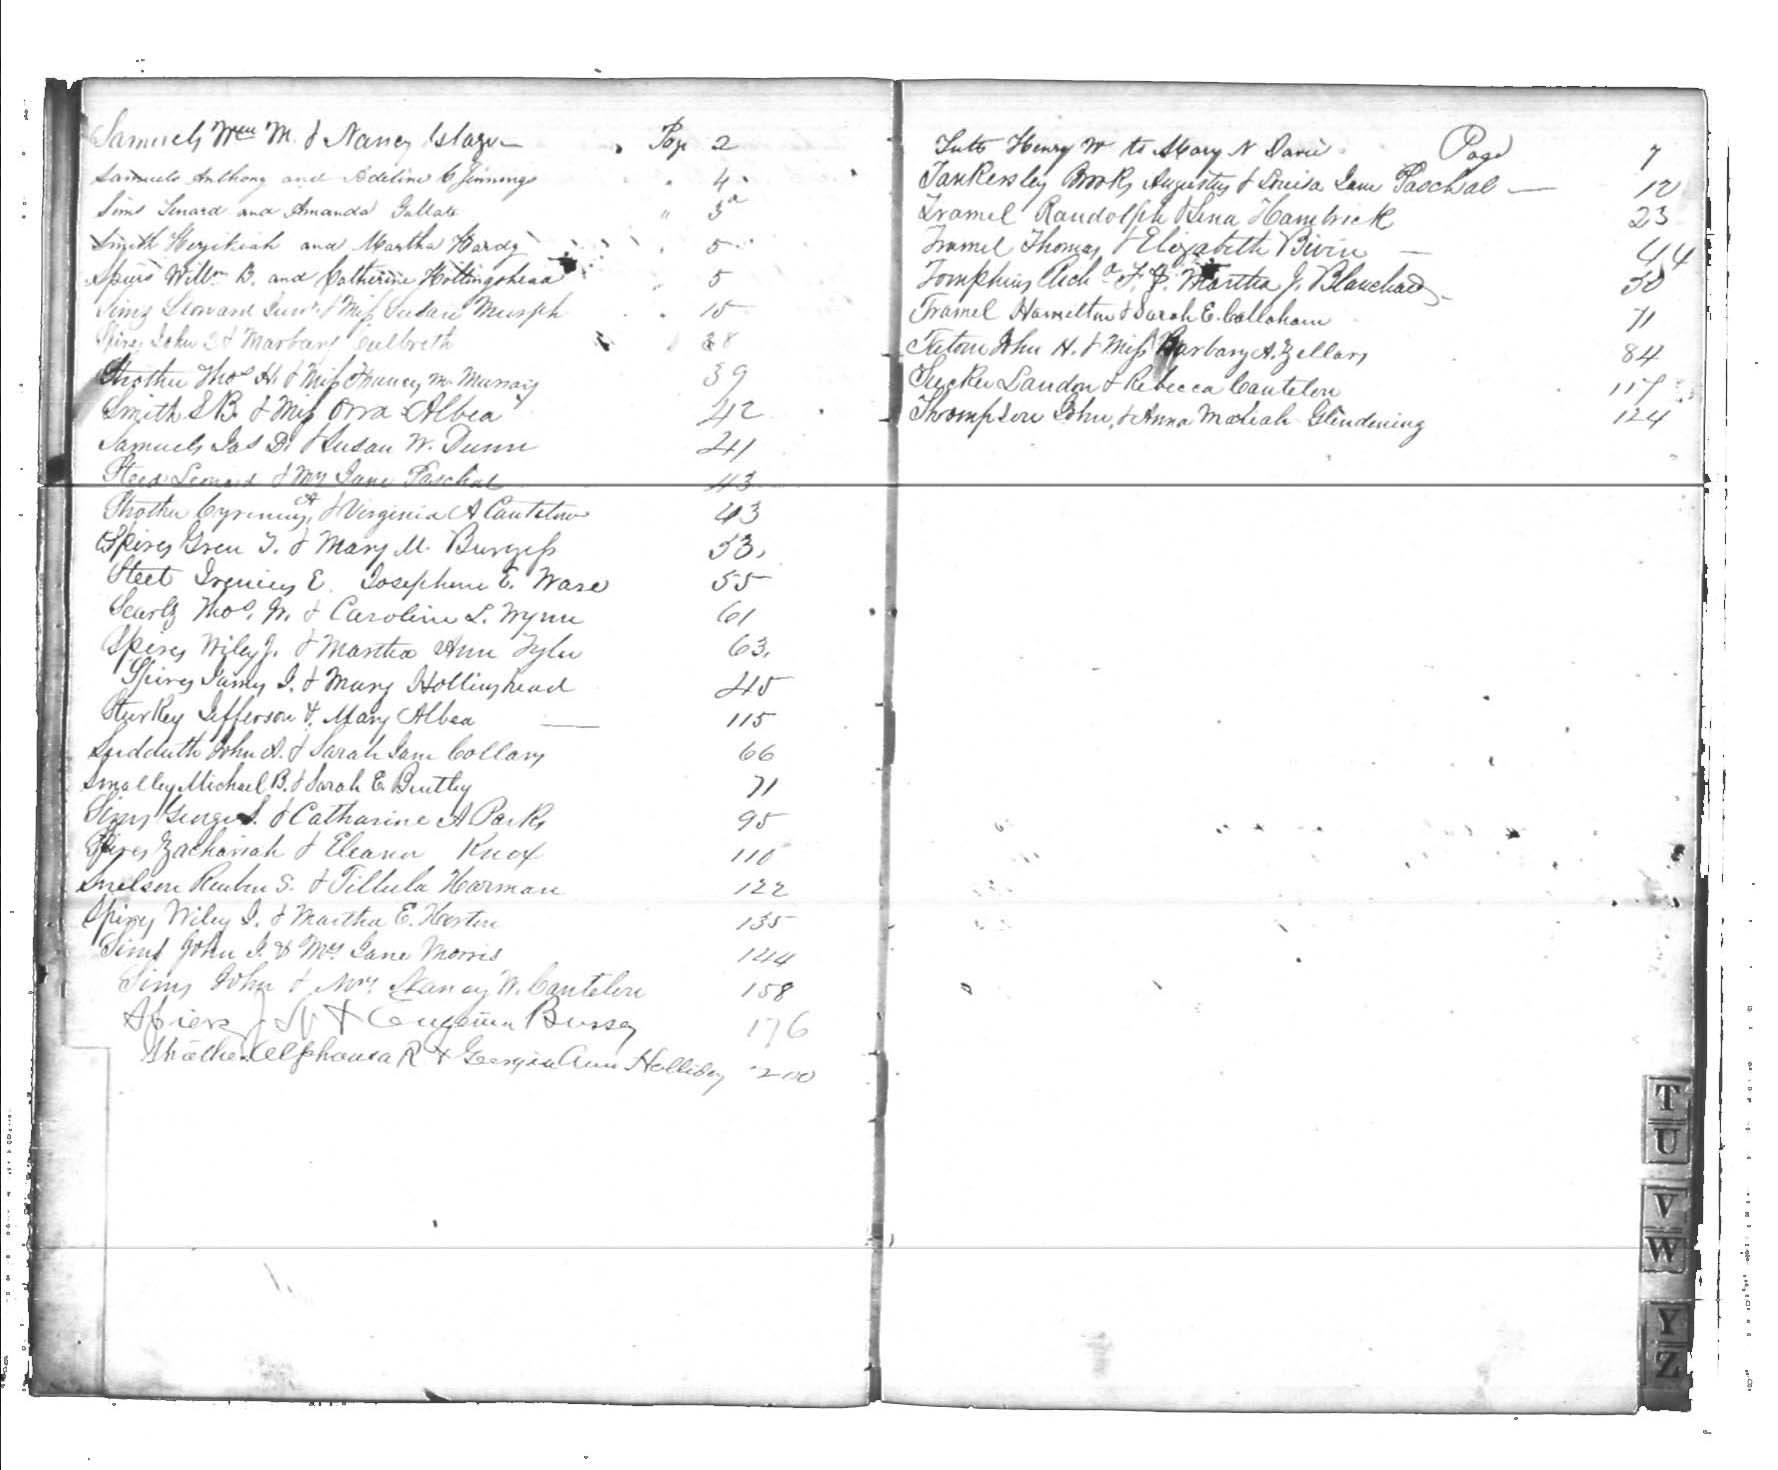 Samuels Wm M. & Nancy Glaze Page 2
Samuels Anthony and Adeline C Jennings 4
Sims Lenard and Amanda 5
Smith Hezikiah and Martha Hardy 5
Spires Willm B. and Catherine Hollingshead 5
Sims Leonard Junr & Miss Susan Mursh 15
Spires John & Marbary Culbreth 38
Strother Thos H. & Miss Nancy McMurray 39
Smith S B. & Miss Orra Albea 42
Samuels Jas D. & Susan W. Dunn 41
Steed Leonard & Mrs Jane Paschal 43
Strother Cyrenius A & Virginia A Cantelow 43
Spires Green T. & Mary M. Burgess 53.
Steet E. Josephine E. Ware 55
Searls Thos. W. & Caroline L. Wynn 61
Spires Wiley J. & Martha Ann Tyler 63.
Spires James I. & Mary Hollingshead 45
Sturkey Jefferson & Mary Albea 115
Sudduth John A. & Sarah Jane Collars 66
Smalley Michael B. & Sarah E. Bentley 71
Sims George S. & Catharine A Parks 95
Spires Zachariah & Eleanor Knox 110
Snelson Reuben S. & Tillula Harman 122
Spires Wiley J. & Martha E. Horten 135
Sims John J. & Mrs Jane Morris 144
Sims John & Mrs. Nancy W. Cantelou 158
Spiers J W & Eugenia Bussey 176
Strother Alphonsa R & Georgia Ann Holliday 200
Tutt Henry W to Mary N Davis Page 7
Tankersley Brooks Augustus & Louisa Jane Paschal 12
Tramel Randolph & Lena Hambrick 23
Tramel Thomas & Elizabeth Bivin 44
Tompkins Archa T. & Martha J. Blanchard 50
Tramel Hamilton & Sarah E. Callaham 71
Tatom John H. & Miss Barbary A. Zellars 84
Tucker Landon & Rebecca Cantelou 117
Thompson John, & Anna Mariah Glendening 124
T
U
V
W
Y
Z